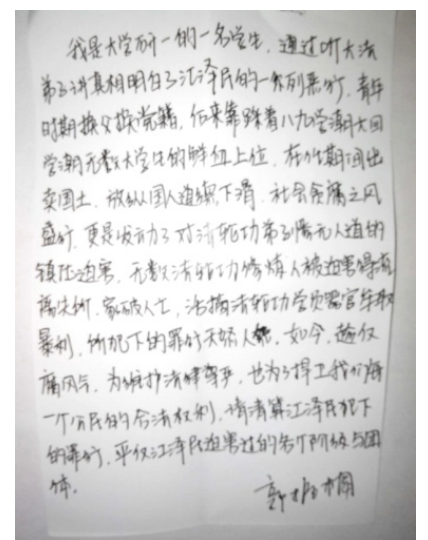 我是大学研一的一名学生，通过听大法
弟子讲真相明白了江泽民的一系列恶行，青年
时期换父换党籍，后来靠踩着八九学潮大回
学潮无数大学生的鲜血上位，在此期间出
卖国土，放纵国人道德下滑，社会贪腐之风
盛行，更是发动了对法轮功弟子惨无人道的
镇压迫害，无数法轮功修炼人被迫害得流
离失所，家破人亡，活摘法轮功学员器官牟取
暴利，所犯下的罪行天怒人怨，如今，
腐风气，为维护法律尊严，也为了捍卫我们每
一个公民的合法权利，请清算江泽民犯下
的罪行，平反江泽民迫害过的各个阶级与团
体。